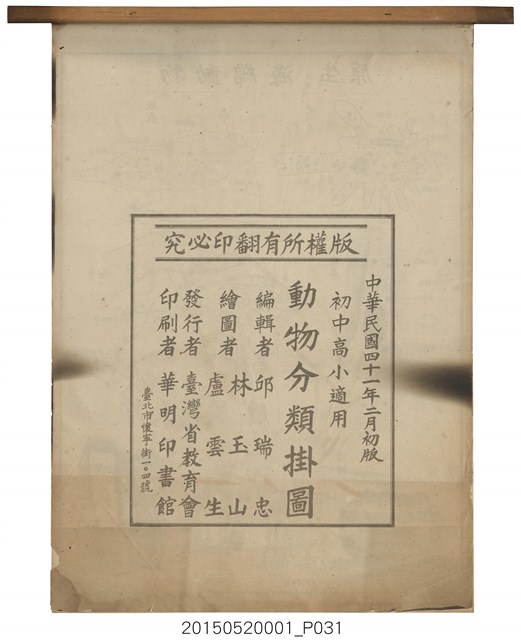 原生海綿動物
版權所有翻印必究
中華民國四十一年二月初版
初中高小適用
動物分類掛圖
編輯者邱瑞忠
繪圖者林玉山
盧雲生
發行者臺灣省教育會
印刷者華明印書館
臺北市懷寧街一〇四號
20150520001_P031